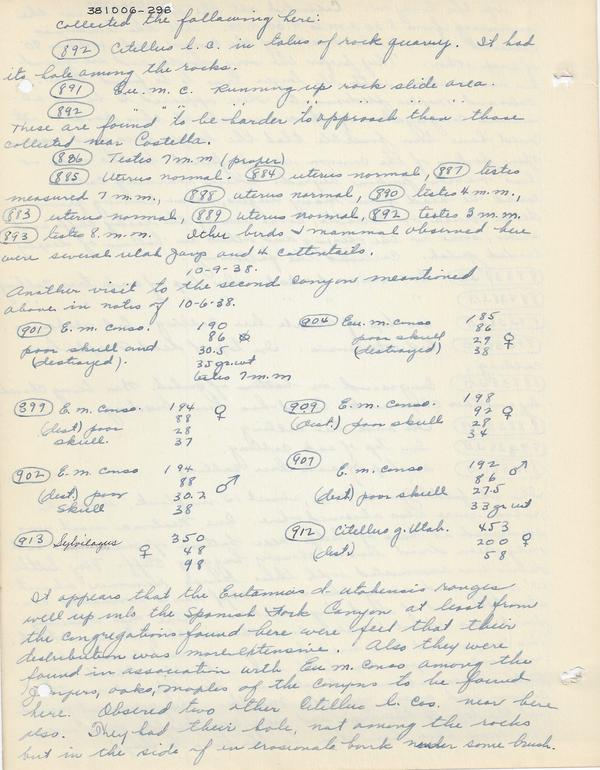 381006-296
collected the following here:
(892) Citellus l. c. in talus of rock quarry. It had
its hole among the rocks.
(891) Eu. m. c. Running up rock slide area.
(892) " " " " " " "
These are found to be harder to approach than those
collected near Costella.
(886) Testes 7 m.m (proper)
(885) Uterus normal. (884) uterus normal, (887) testes
measured 7 m.m., (888) uterus normal, (890) testes 4 m.m.,
(883) uterus normal, (889) uterus normal, (892) testes 3 m.m.
(893) testes 8. m.m. Other birds & mammal observed here
were several utah Jays and 4 cottontails.
10-9-38.
Another visit to the second canyon meantioned
above in notes of 10-6-38.
(901) E. m. Conso. 190
poor skull and 86 ♂
(destroyed). 30.5
35 gr. wt
testes 7 m m
(904) Eu. m. Conso 185
poor skull 86
(destroyed) 29 ♀
38
(899) E. m. Conso. 194 ♀
(dest) poor 88
skull. 28
37
(909) E. m. Conso. 198
(dest.) poor skull 92 ♀
28
34
(902) E. m. Conso 194
(dest.) poor 88 ♂
skull 30.2
38
(907) E. m. Conso 192 ♂
(dest) poor skull 86
27.5
33 gr wt
(913) Sylvilagus 350
♀ 48
98
(912) Citellus g. Utah. 453
(dest) 200 ♀
58
It appears that the Eutamias d- utahensis ranges
well up into the Spanish Fork Canyon at least from
the congregations found here were feel that their
distribution was more extensive. Also they were
found in association with Eu. m. Conso among the
junipers, oaks, maples of the canyns to be found
here. Obsered two other Citellus l. Cas. near here
also. They had their hole, not among the rocks
but in the side of en erosionale bank under some brush.